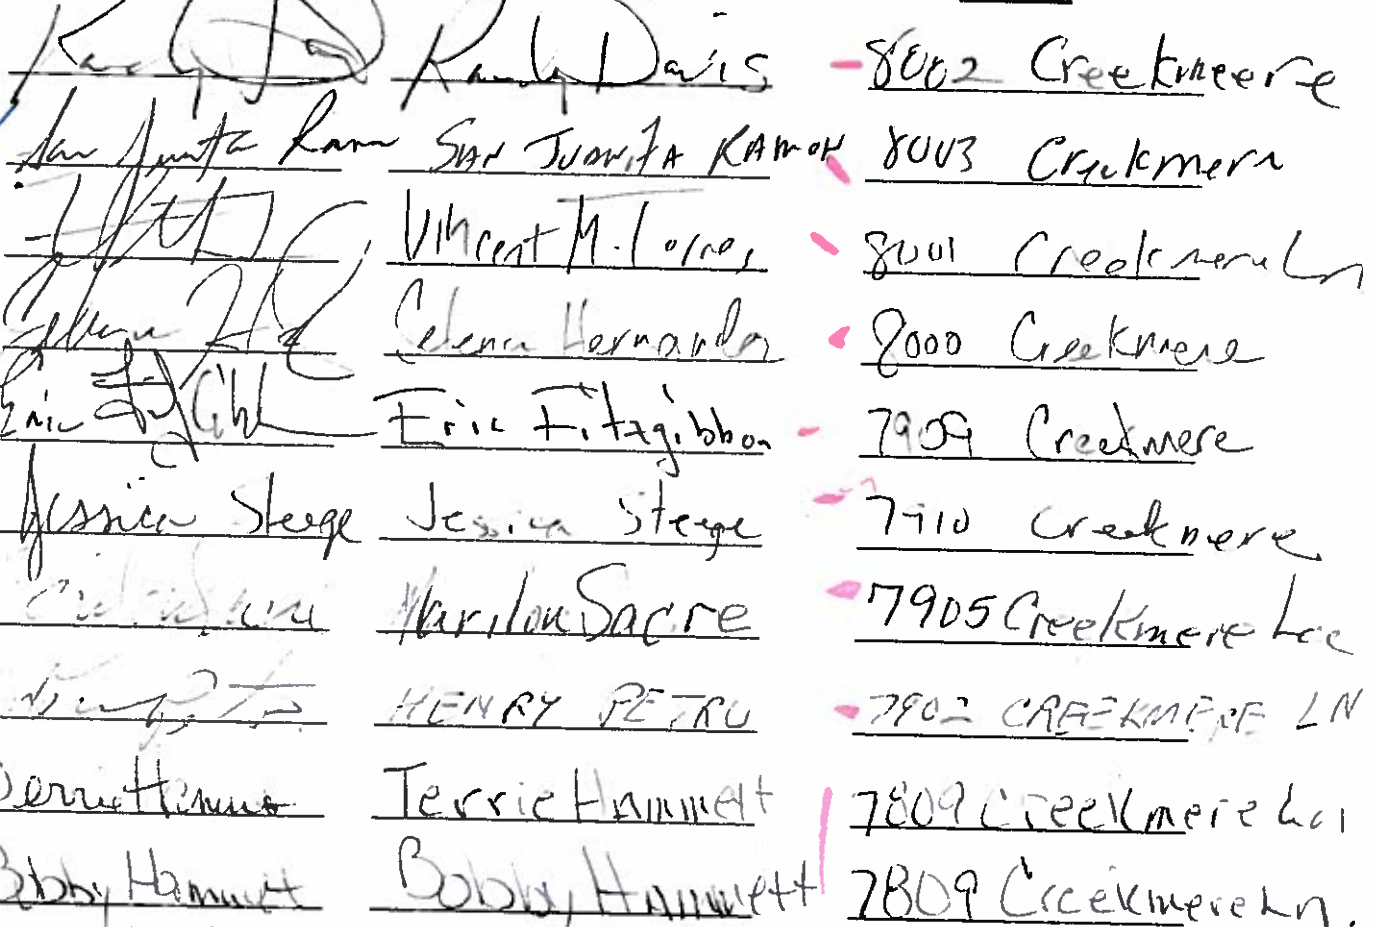 Randy D Randy Davis 8002 Creekmeere
San Juanita Ramon SAN JUANITA RAMON 8003 Creekmere
Vincent M. Torres 8001 Creekmere Ln
Celena Hernandez 8000 Creekmere
Eric Fitzgibbon Eric Fitzgibbon 7909 Creekmere
Jessica Steege Jessica Steege 7910 Creekmere
Marilou Sacre 7905 Creekmere
HENRY PETRU 7902 CREEKMERE LN
Terrie Hammett Terrie Hammett 7809 Creekmere Ln
Bobby Hammett Bobby Hammett 7809 Creekmere Ln.